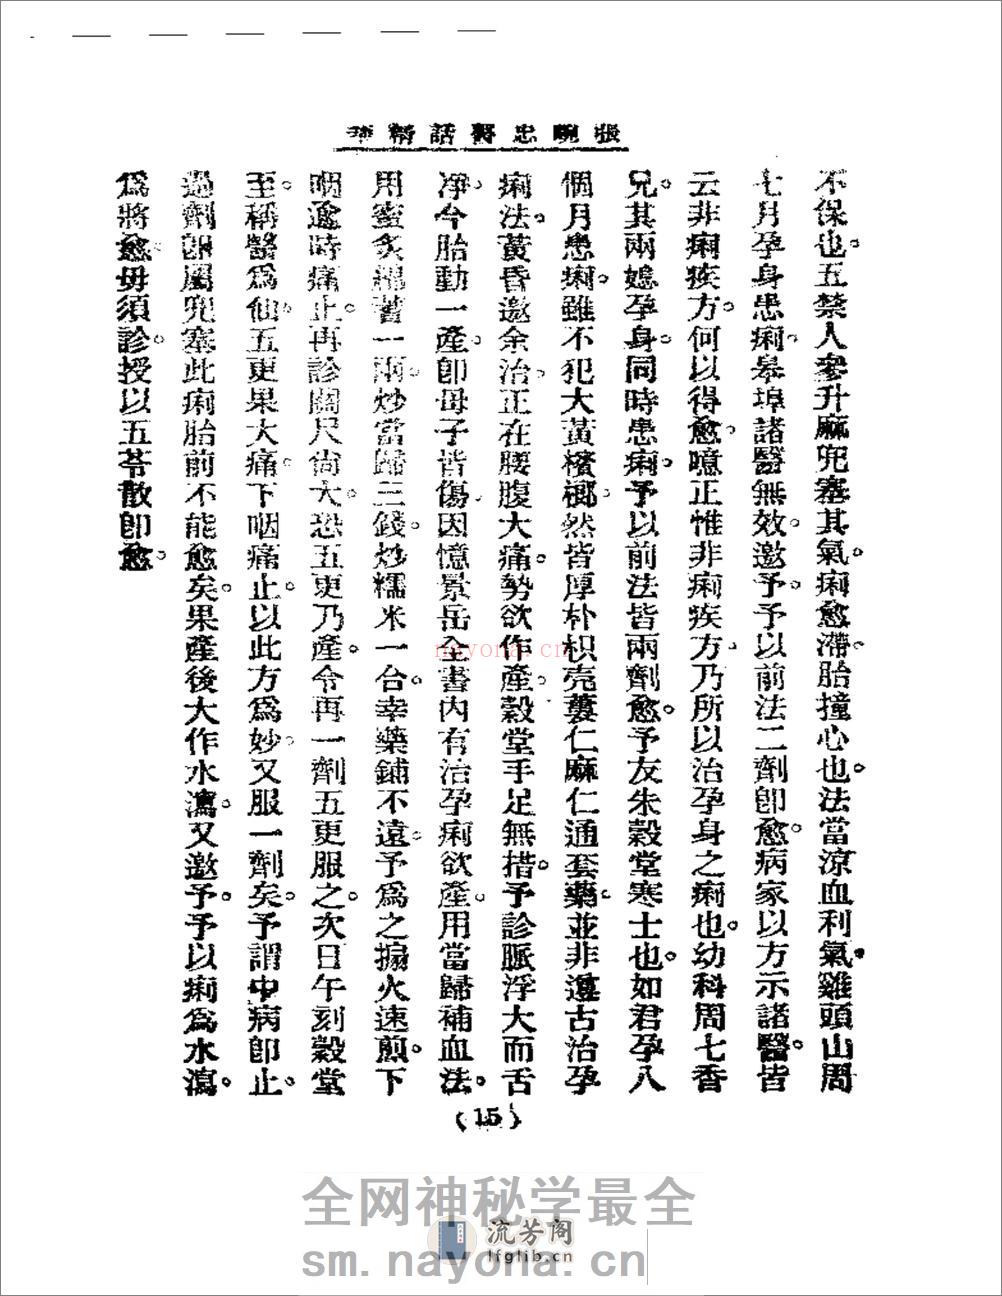 張畹忠醫話精華
不保也。五禁人參升麻兜塞其氣。痢愈滯胎撞心也。法當涼血利氣。雞頭山周
七月孕身患痢。皋埠諸醫無效。邀予。予以前法二劑卽愈。病家以方示諸醫。皆
云非痢疾方。何以得愈。噫正惟非痢疾方。乃所以治孕身之痢也。幼科周七香
兄。其兩媳孕身。同時患痢。予以前法皆兩劑愈。予友朱穀堂寒士也。如君孕八
個月患痢。雖不犯大黃檳榔。然皆厚朴枳壳蔞仁麻仁通套藥。並非遵古治孕
痢法。黃昏邀余治。正在腰腹大痛。勢欲作產。穀堂手足無措。予診脈浮大而舌
淨。今胎動一產。卽母子皆傷。因憶景岳全書內有治孕痢欲產。用當歸補血法。
用蜜炙綿蓍一兩。炒當歸三錢。炒糯米一合。幸藥鋪不遠。予爲之搧火速煎。下
咽逾時痛止。再診關尺尙大。恐五更乃產。令再一劑五更服之。次日午刻穀堂
至。稱醫爲仙。五更果大痛。下咽痛止。以此方爲妙。又服一劑矣。予謂中病卽止。
過劑卽屬兜塞。此痢胎前不能愈矣。果產後大作水瀉。又邀予。予以痢爲水瀉。
爲將愈。毋須診。授以五苓散卽愈。
(15)
nayona.cn
全网神秘学最全
流芳阁
lfglib.cn
sm.nayona.cn